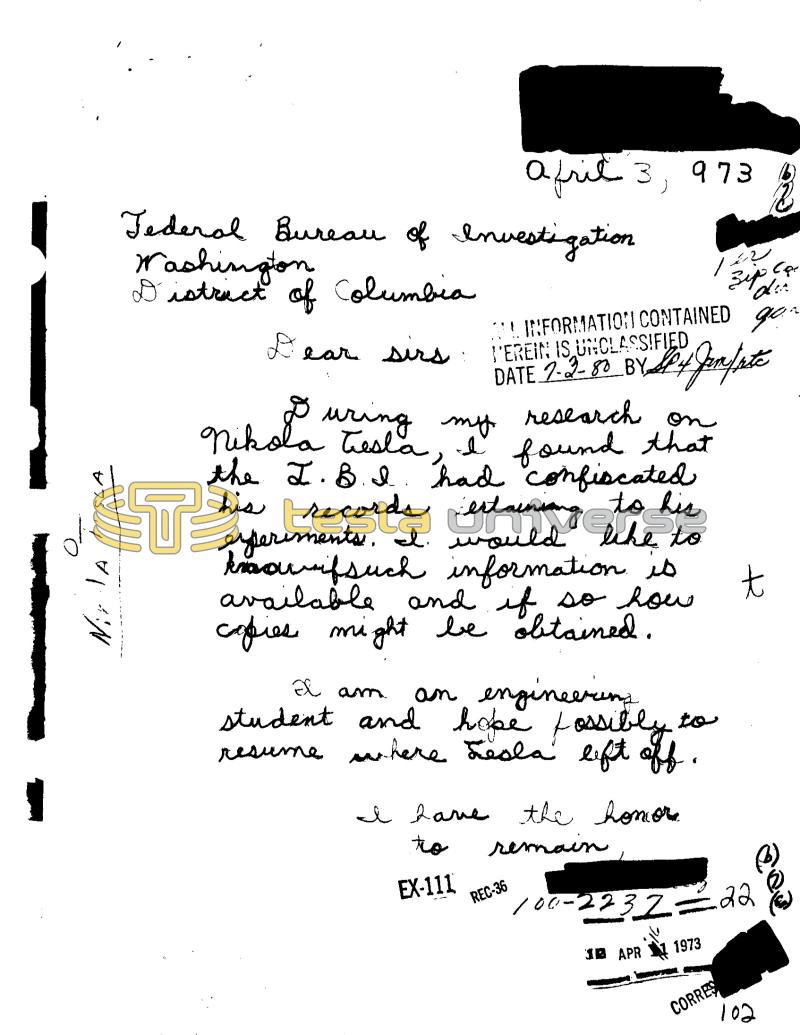 April 3, 973
(b)
Federal Bureau of Investigation
Washington
District of Columbia
1 en
zip
ALL INFORMATION CONTAINED
HEREIN IS UNCLASSIFIED
DATE 7-2-80 BY
Dear sirs:
During my research on
Nikola Tesla, I found that
the F.B.I. had confiscated
his records ertaining to his
experiments. I would like to
know if such information is
available and if so how
copies might be obtained.
I am an engineering
student and hope possibly to
resume where Tesla left off.
I have the honor
to remain,
tesla universe
EX-111
REC-36
100-2237-22
(b)
(7)
(c)
APR 11 1973
CORRES
102